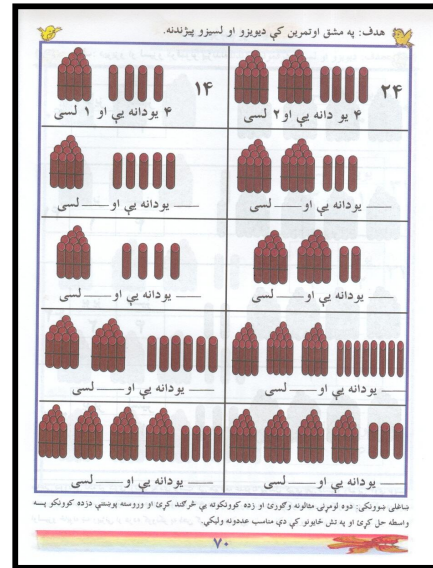 هدف: په مشق اوتمرین کې دیویزو او لسیزو پیژندنه.
۲۴
۴ یو دانه یې او ۲ لسی
۱۴
۴ یودانه یې او ۱ لسی
___ یودانه یې او ___ لسی
___ یودانه یې او ___ لسی
___ یودانه یې او ___ لسی
___ یودانه یې او ___ لسی
___ یودانه یې او ___ لسی
___ یودانه یې او ___ لسی
___ یودانه یې او ___ لسی
___ یودانه یې او ___ لسی
ښاغلی ښوونکی: دوه لومړنی مثالونه وګورئ او زده کوونکوته یې څرګند کړئ او وروسته پوښتنې دزده کوونکو پسه
واسطه حل کړئ او په تش ځایونو کې دې مناسب عددونه ولیکي.
۷۰